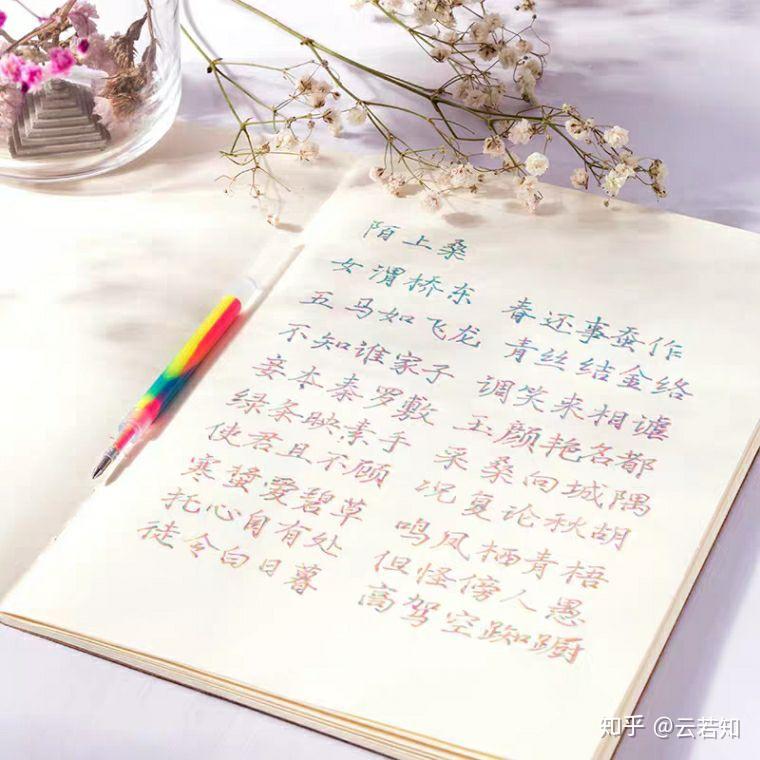 陌上桑
女渭桥东 春还事蚕作
五马如飞龙 青丝结金络
不知谁家子 调笑来相谑
妾本秦罗敷 玉颜艳名都
绿条映素手 采桑向城隅
使君且不顾 况复论秋胡
寒螀爱碧草 鸣凤栖青梧
托心自有处 但怪傍人愚
徒令白日暮 高驾空踟蹰
知乎 @云若知